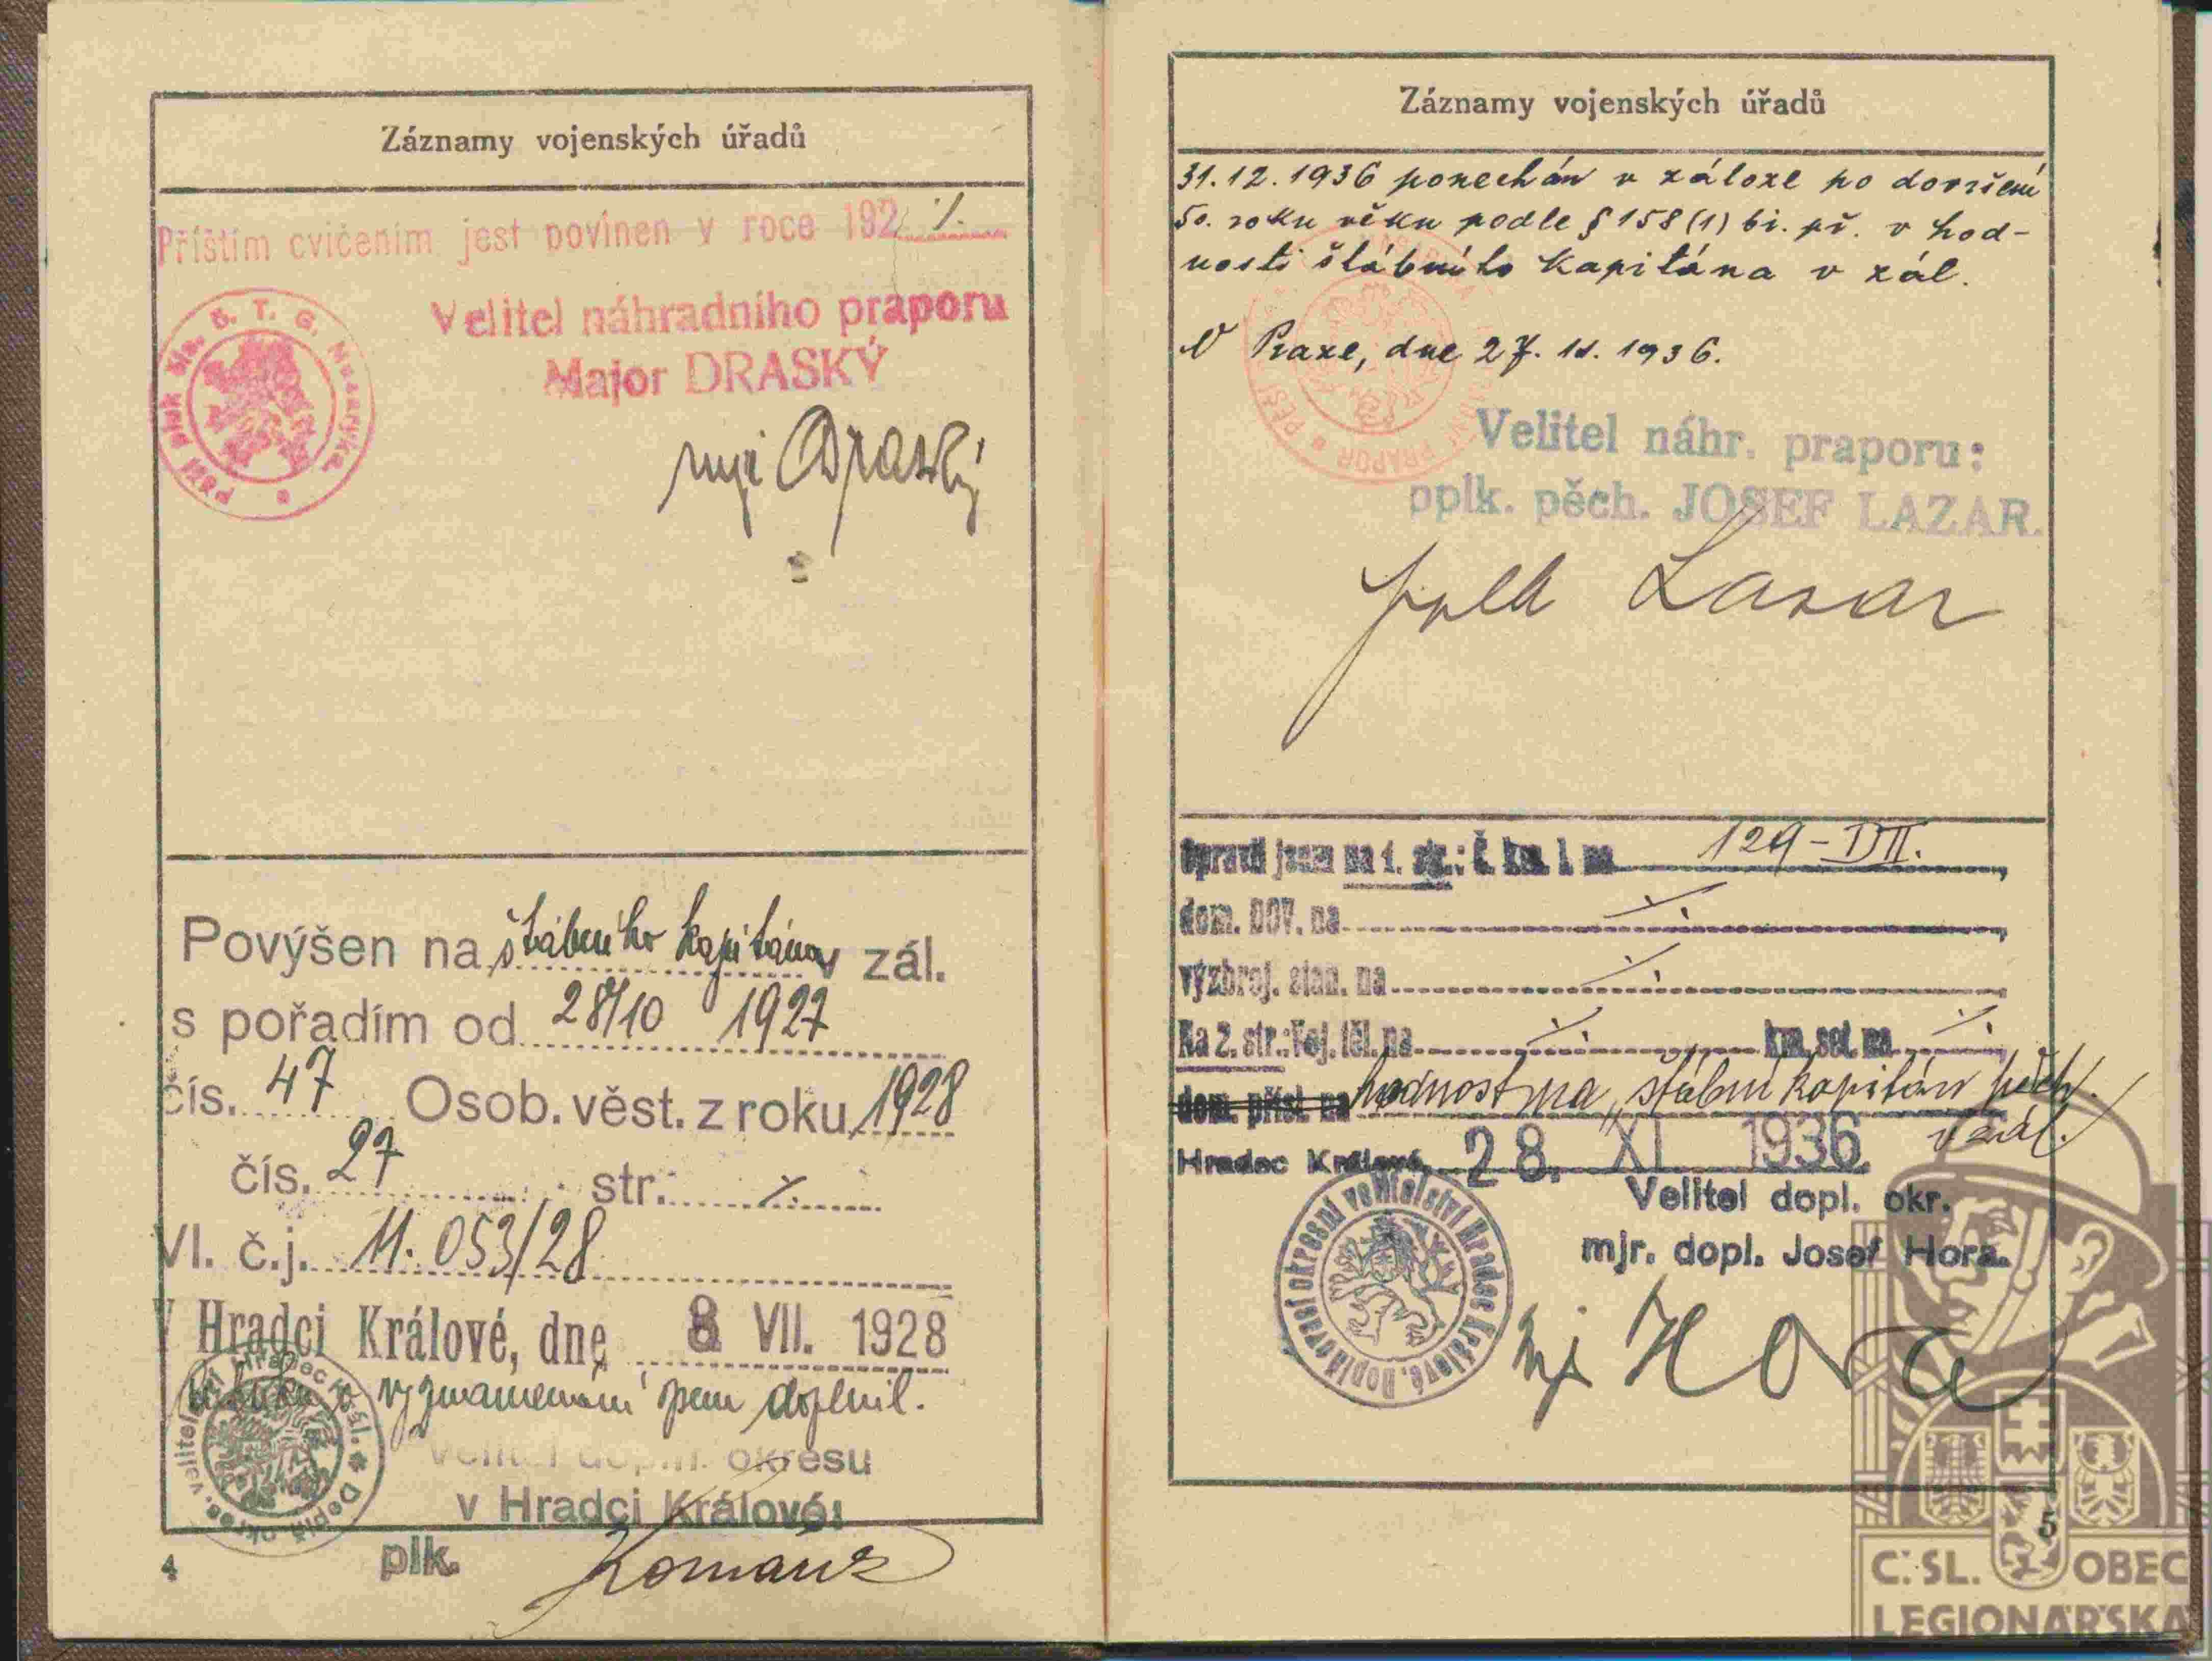 Záznamy vojenských úřadů
Příštím cvičením jest povinen v roce 192 ./.
Velitel náhradního praporu
Major DRASKÝ
Pěší pluk 5. T. G. Masaryka
mjr Draský
Povýšen na štábního kapitána v zál.
s pořadím od 28/10 1927
čís. 47 Osob. věst. z roku 1928
čís. 27 str. ./.
Vl. č.j. 11.053/28
V Hradci Králové, dne 8 VII. 1928
vyznamenání jsem doplnil.
Velitel dopln. okresu
v Hradci Králové:
plk.
4
Záznamy vojenských úřadů
31.12.1936 ponechán v záloze po dovršení
50. roku věku podle § 158 (1) br. př. v hod-
nosti štábního kapitána v zál.
V Praze, dne 27. 11. 1936.
Velitel náhr. praporu:
pplk. pěch. JOSEF LAZAR.
pplk Lazar
Opravil jsem na 1. str.: č. km. l. na 129-DII.
dom. DOV. na ./.
výzbroj. stan. na ./.
Na 2. str.: Voj. těl. na ./. km. sel. na ./.
dom. přísl. na hodnost na „štábní kapitán pěch.
v zál."
Hradec Králové, 28. XI. 1936
Velitel dopl. okr.
mjr. dopl. Josef Hora.
Doplňovací okresní velitelství Hradec Králové
mjr Hora
5
Č.SL. OBEC
LEGIONÁŘSKÁ